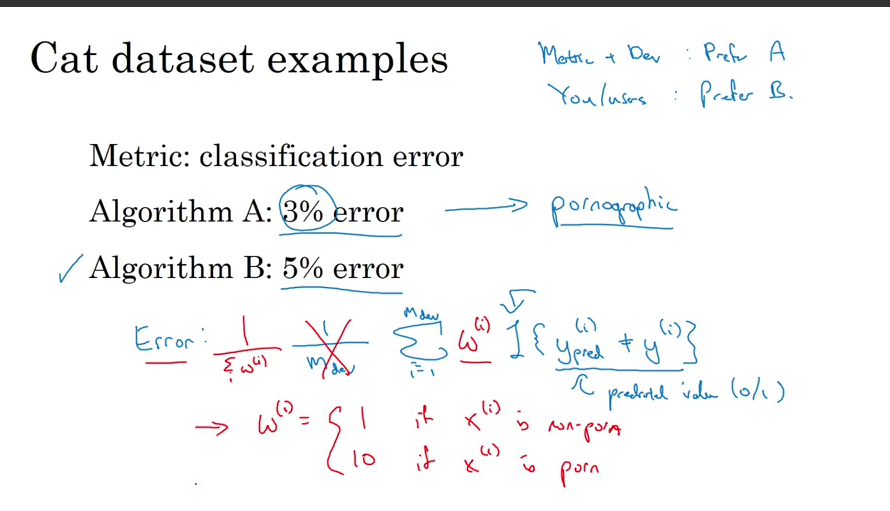 Cat dataset examples
Metric + Dev : Prefer A
You/users : Prefer B.
Metric: classification error
Algorithm A: 3% error → pornographic
✓ Algorithm B: 5% error
Error: 1/Σᵢ w⁽ⁱ⁾ 1/m_dev Σ_{i=1}^{m_dev} w⁽ⁱ⁾ 1{ y_pred⁽ⁱ⁾ ≠ y⁽ⁱ⁾ }
predicted value (0/1)
→ w⁽ⁱ⁾ = { 1 if x⁽ⁱ⁾ is non-porn
10 if x⁽ⁱ⁾ is porn